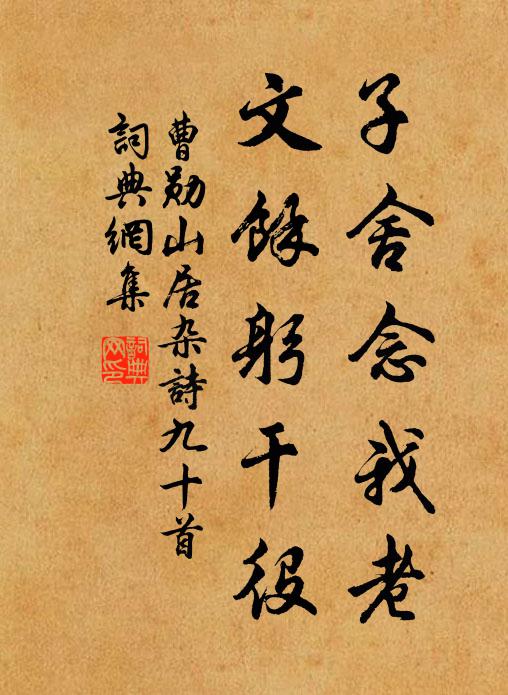 子舍念我老
文餘躬干役
曹勋山居杂詩九十首
詞典網集
詞典
网印